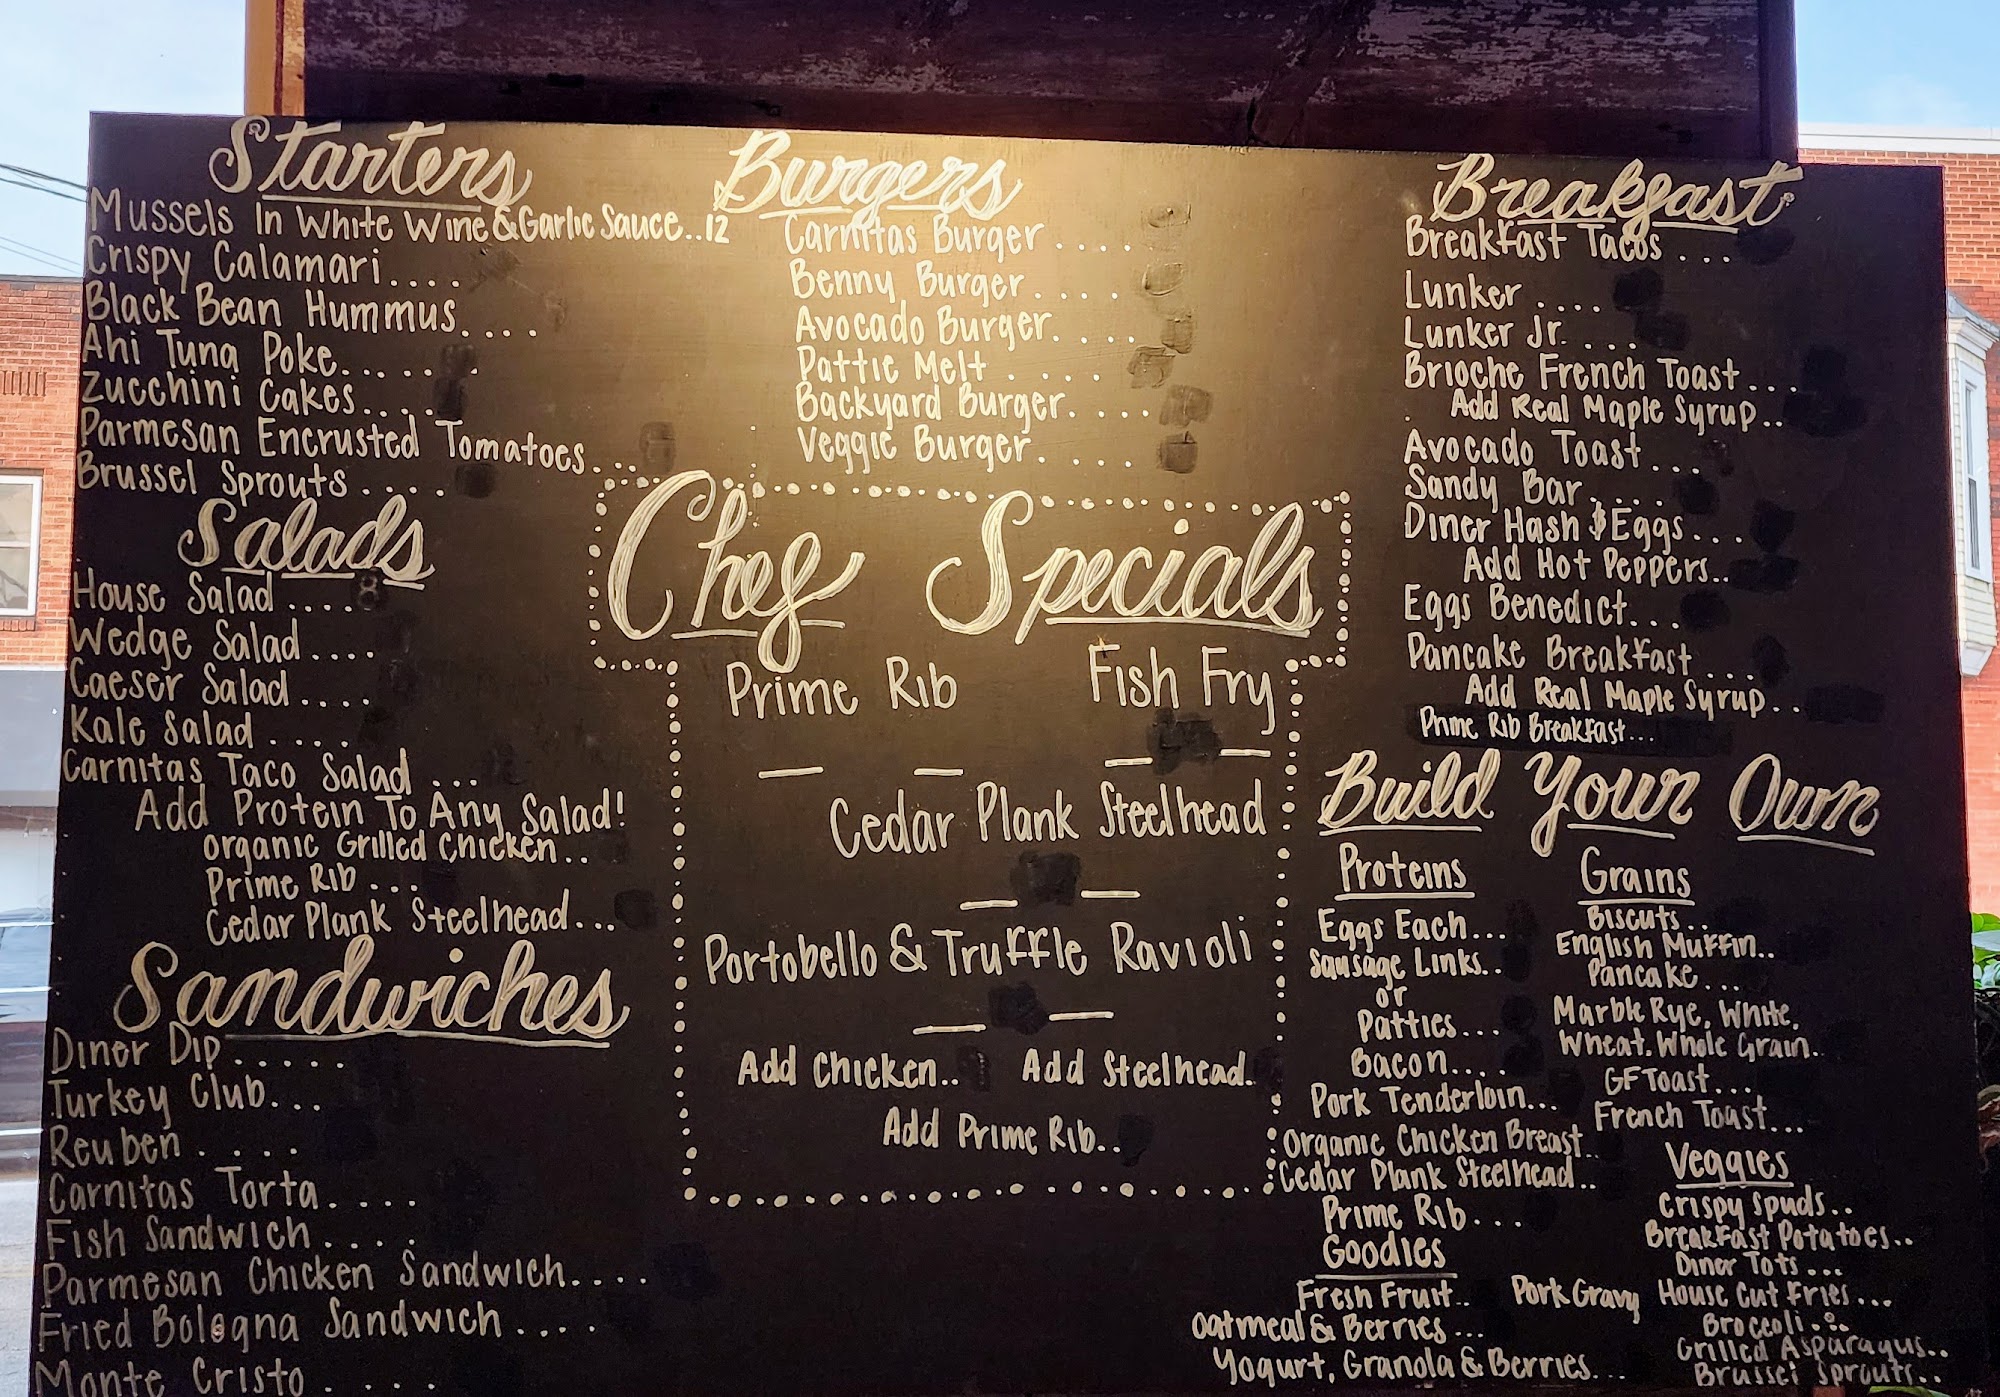 Starters
Mussels In White Wine & Garlic Sauce..12
Crispy Calamari....
Black Bean Hummus....
Ahi Tuna Poke......
Zucchini Cakes....
Parmesan Encrusted Tomatoes...
Brussel Sprouts....
Salads
House Salad....8
Wedge Salad....
Caeser Salad....
Kale Salad.....
Carnitas Taco Salad...
Add Protein To Any Salad!
Organic Grilled Chicken..
Prime Rib...
Cedar Plank Steelhead...
Sandwiches
Diner Dip.....
Turkey Club...
Reuben....
Carnitas Torta....
Fish Sandwich....
Parmesan Chicken Sandwich....
Fried Bologna Sandwich....
Monte Cristo....
Burgers
Carnitas Burger....
Benny Burger....
Avocado Burger....
Pattie Melt....
Backyard Burger....
Veggie Burger....
Chef Specials
Prime Rib
Fish Fry
Cedar Plank Steelhead
Portobello & Truffle Ravioli
Add Chicken..
Add Steelhead.
Add Prime Rib..
Breakfast
Breakfast Tacos...
Lunker....
Lunker Jr....
Brioche French Toast...
Add Real Maple Syrup..
Avocado Toast...
Sandy Bar....
Diner Hash $ Eggs...
Add Hot Peppers..
Eggs Benedict...
Pancake Breakfast....
Add Real Maple Syrup..
Prime Rib Breakfast...
Build Your Own
Proteins
Eggs Each...
Sausage Links..
or
Patties...
Bacon....
Pork Tenderloin...
Organic Chicken Breast..
Cedar Plank Steelhead..
Prime Rib...
Goodies
Fresh Fruit..
Pork Gravy
Oatmeal & Berries...
Yogurt, Granola & Berries...
Grains
Biscuts..
English Muffin..
Pancake...
Marble Rye, White,
Wheat, Whole Grain..
GF Toast...
French Toast...
Veggies
Crispy Spuds..
Breakfast Potatoes..
Diner Tots...
House Cut Fries...
Broccoli...
Grilled Asparagus..
Brussel Sprouts..